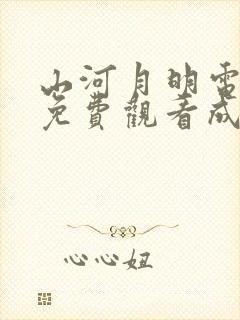 山河月明電
免費觀看成
心心妞